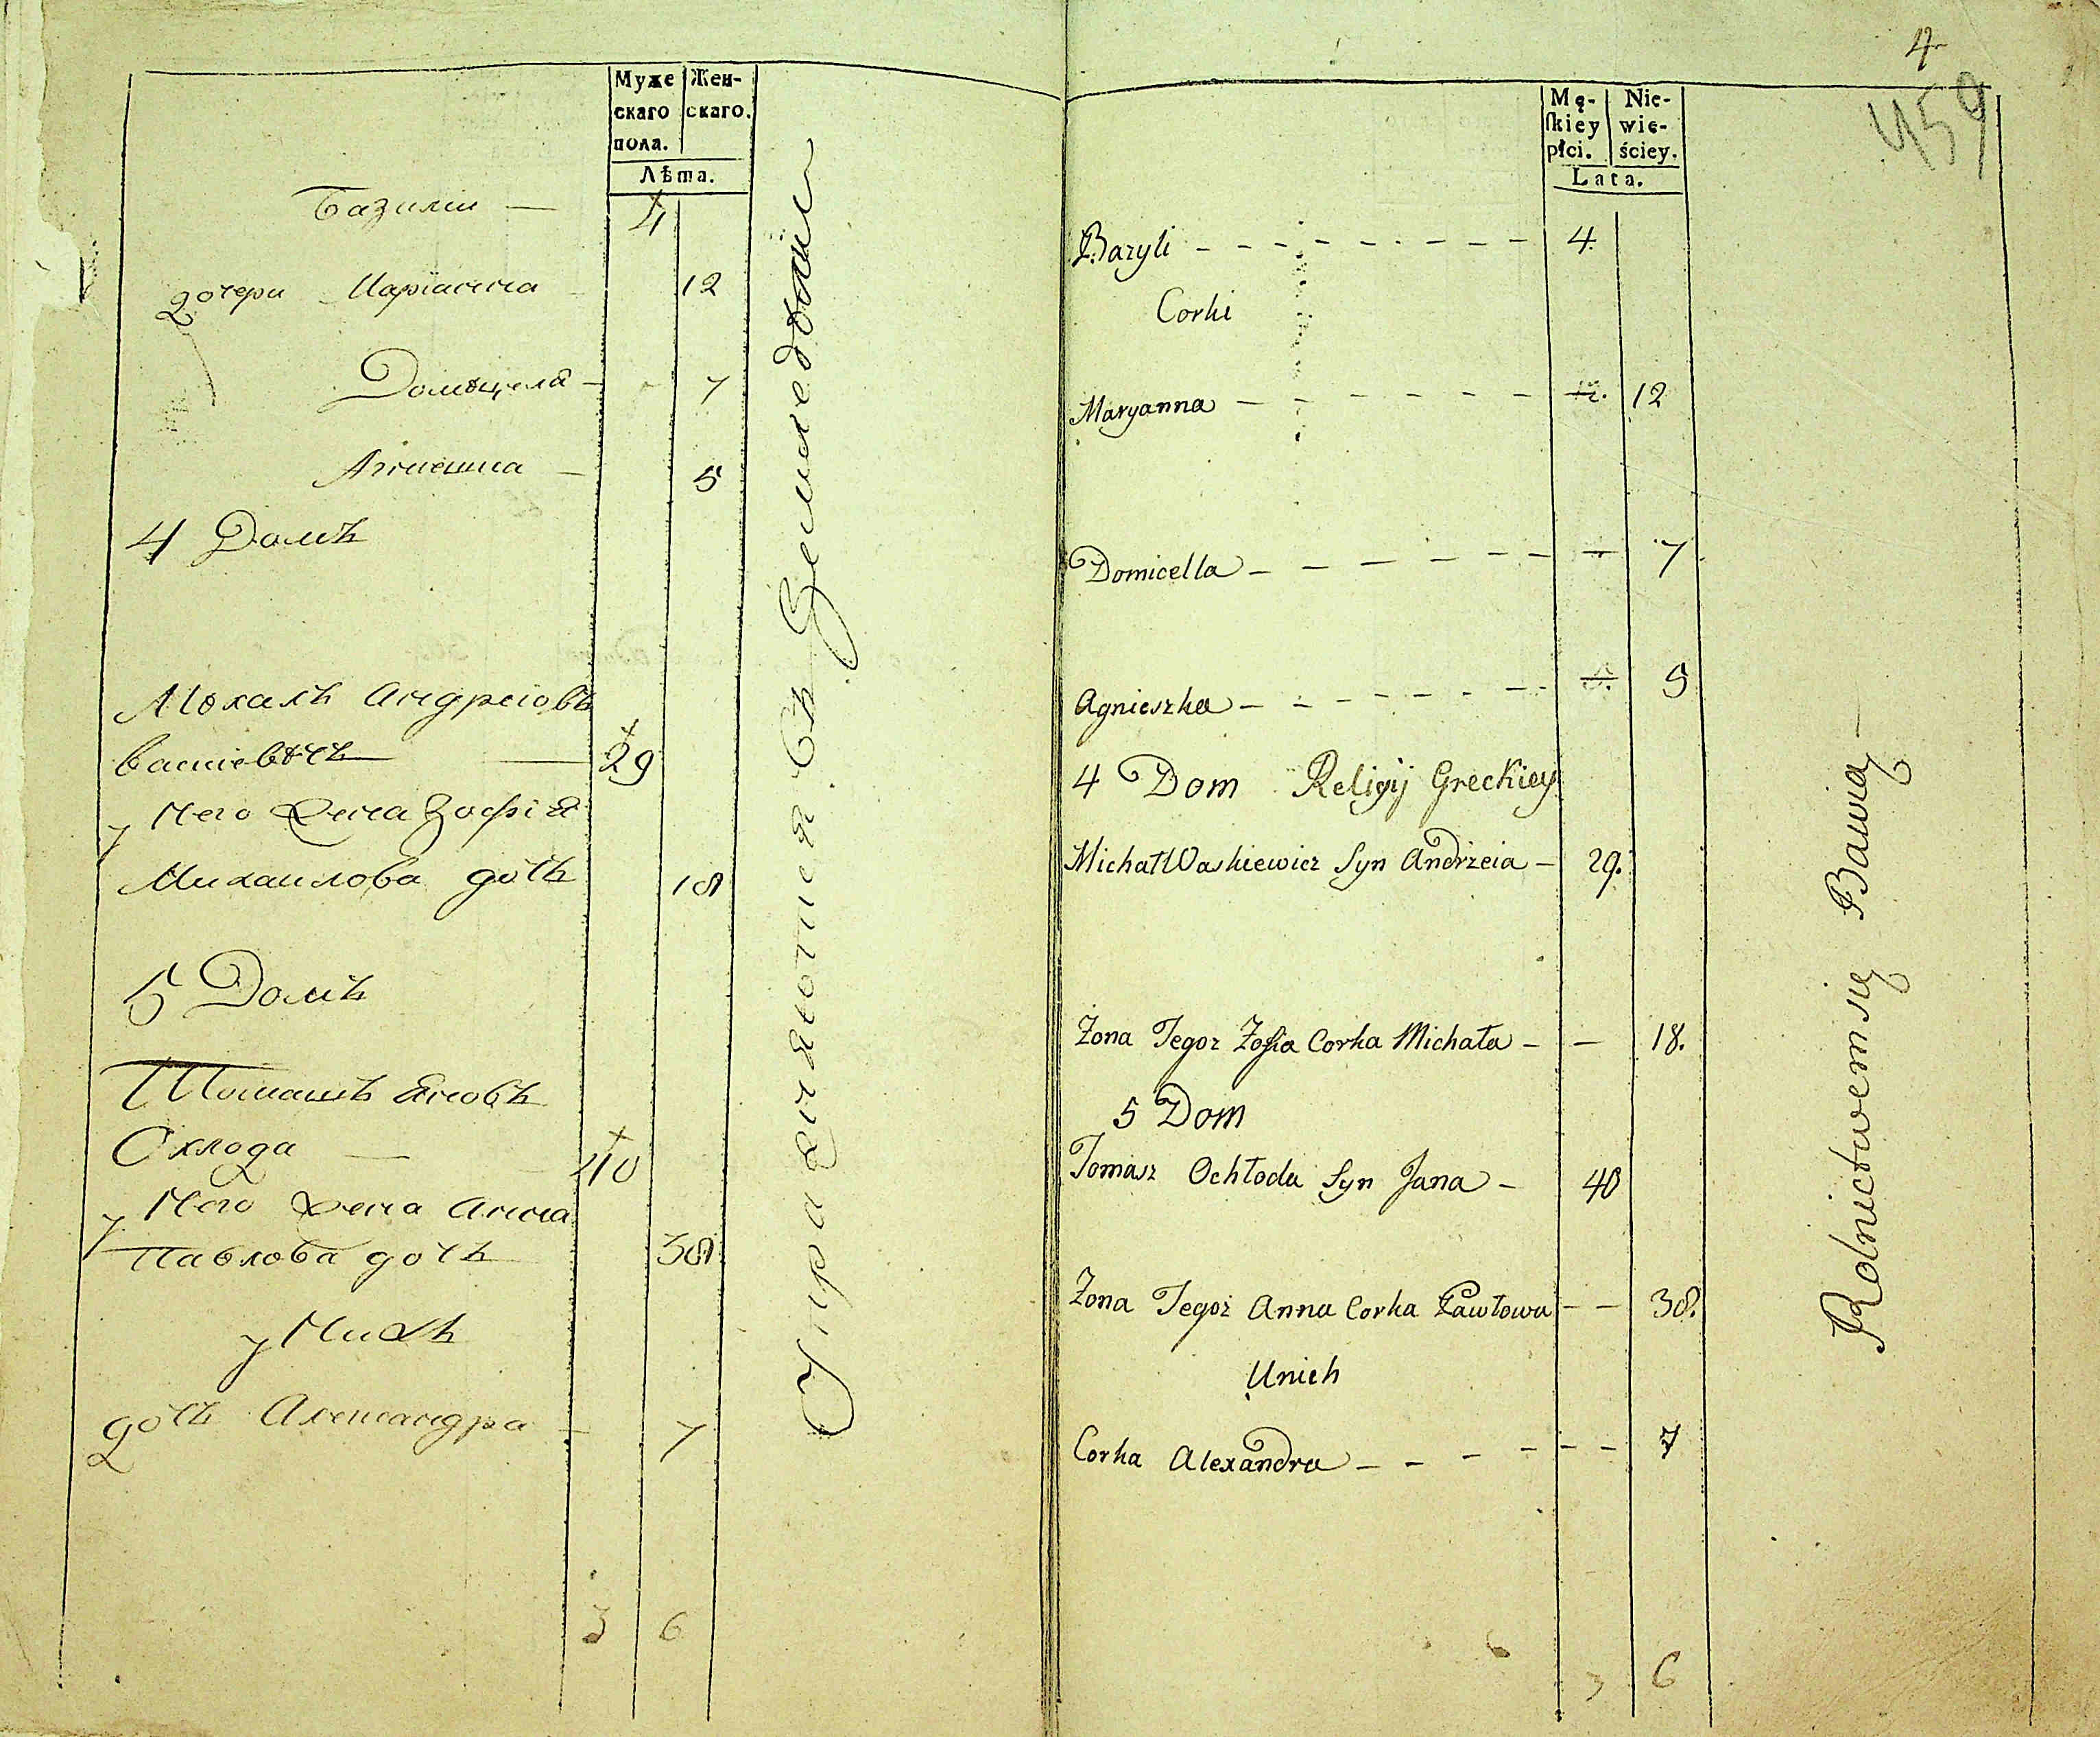 Муже Жен-
скаго скаго.
пола.
Лѣта.
Базили — 4
дочери Марiанна 12
Домѣцела — 7
Агнешка — 5
4 Домъ
Мѣхалъ Андреiовъ
Васкiевѣчъ — 29
у него жена Зофiя
Михаилова дочъ 18
5 Домъ
Томашъ Яновъ
Охлода — 40
у него жена Анна
Павлова дочъ 38
у нихъ
дочъ Александра — 7
3 6
Упражняютця въ Земледѣлiи
4
459
Mę- Nie-
ſkiey wie-
płci. ściey.
Lata.
Bazyli - - - - - - - - 4.
Corki
Maryanna - - - - - - 12. 12
Domicella - - - - - - 7
Agnieszka - - - - - - 5. 5
4 Dom Religij Greckiey
Michał Waskiewicz Syn Andrzeia - 29.
Żona Tegoz Zofia Corka Michała - - 18.
5 Dom
Tomasz Ochłoda Syn Jana - 40
Żona Tegoż Anna Corka Pawłowa - - 38.
Unich
Corka Alexandra - - - - - - 7
3 6
Rolnictwem się Bawią —